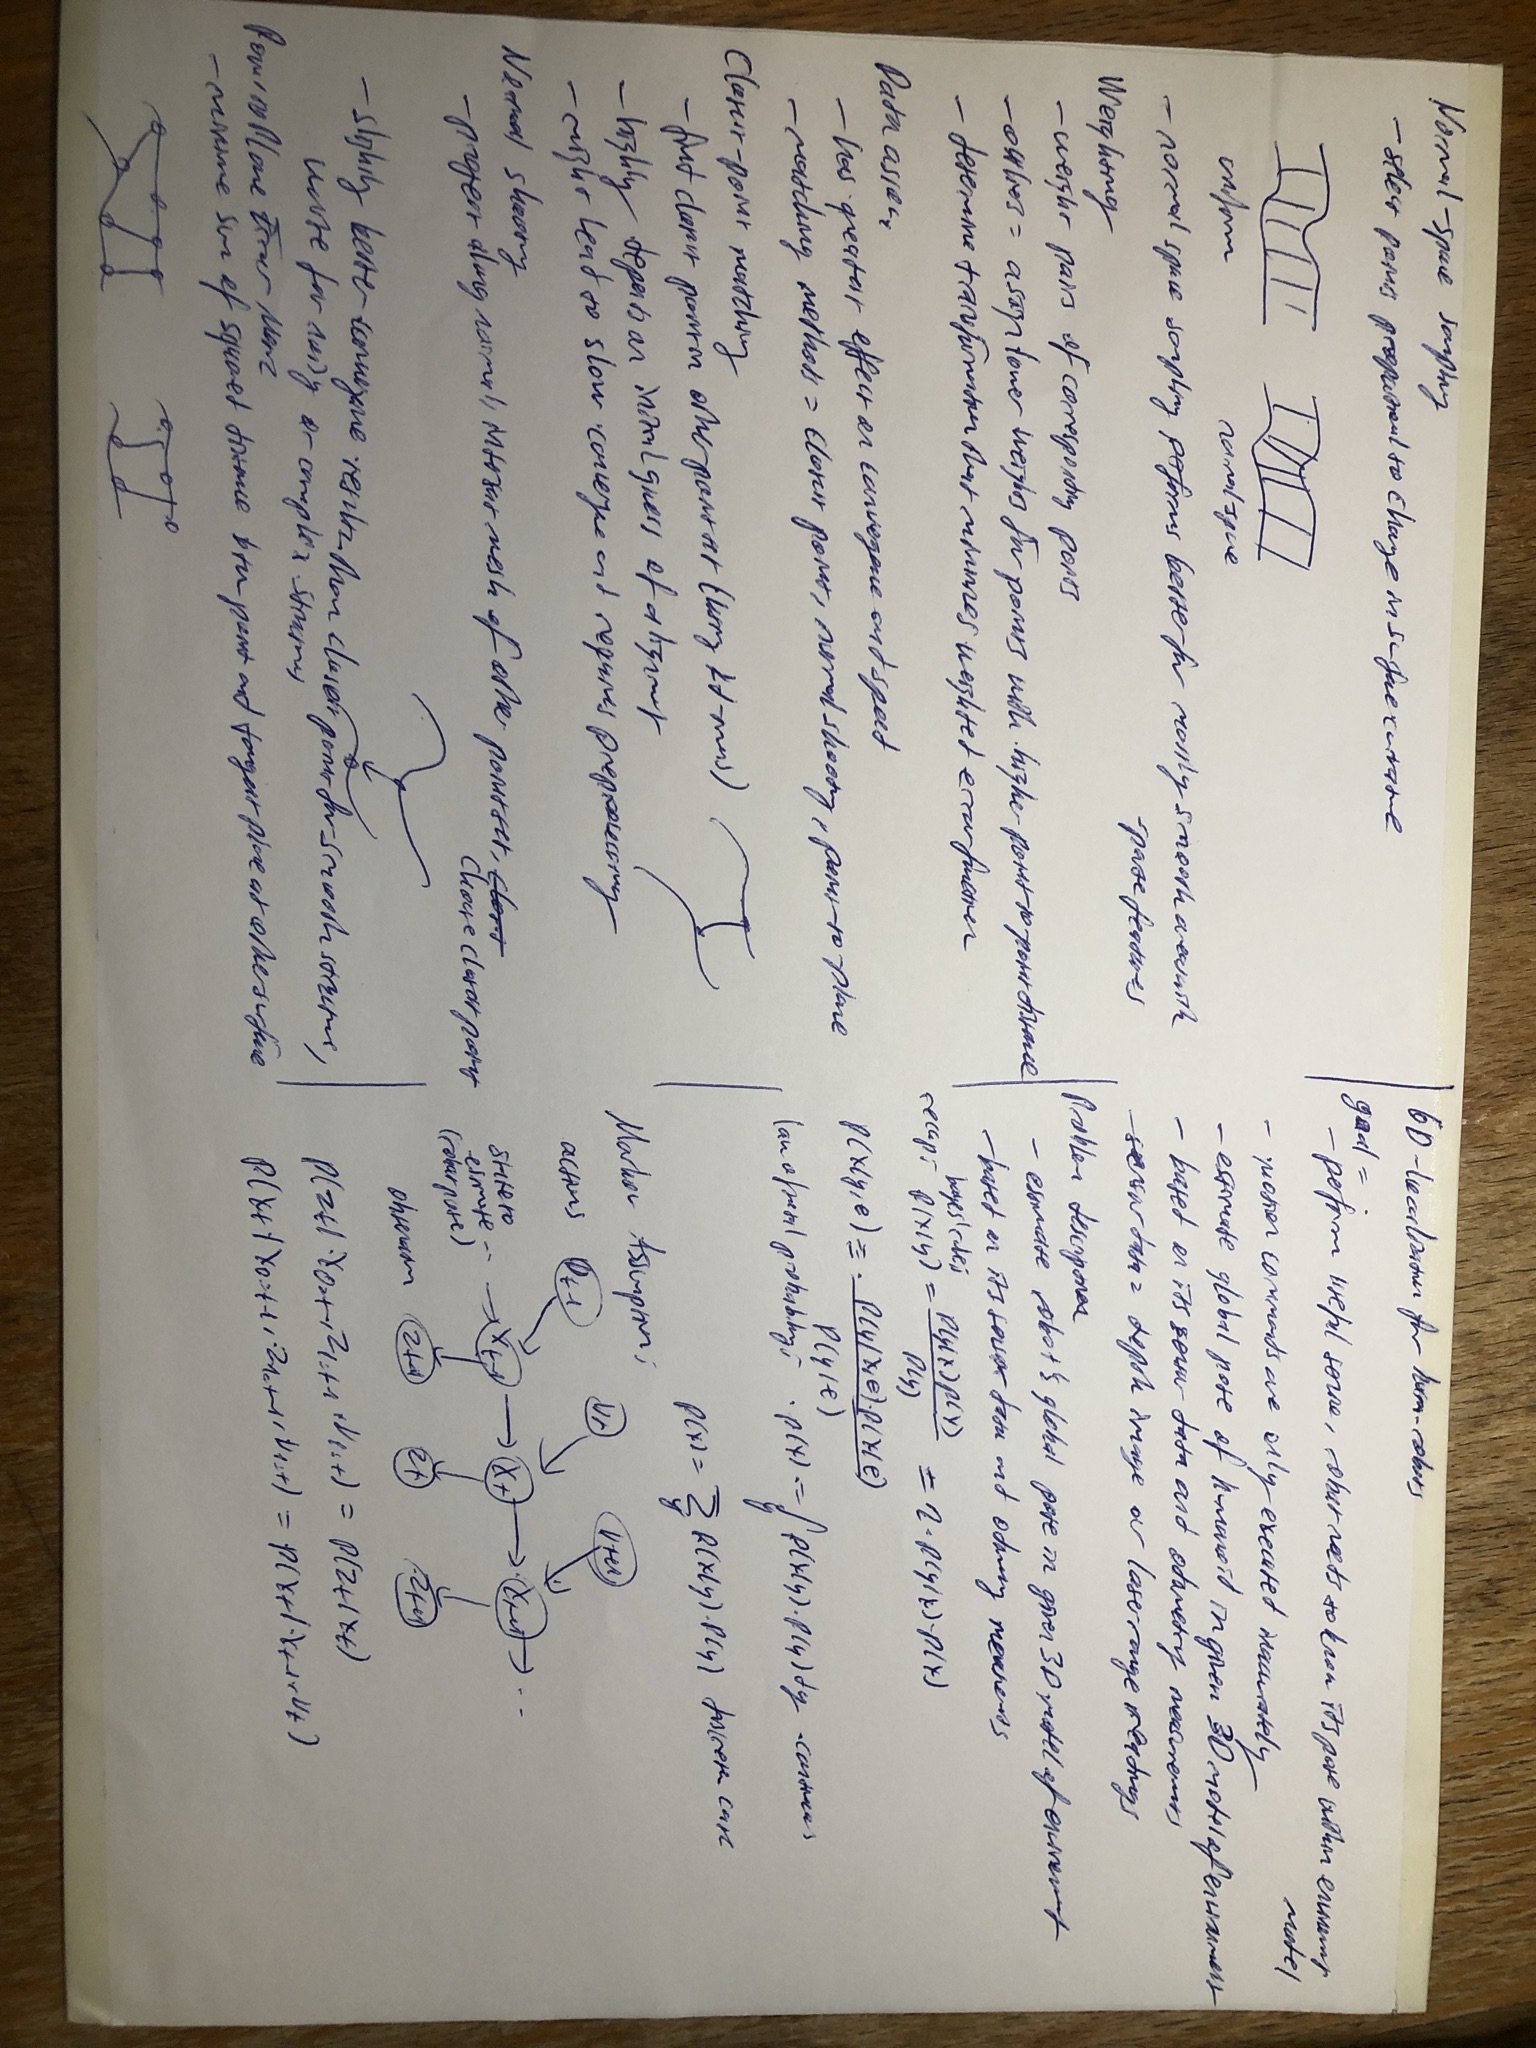 Normal-space sampling
- select points proportional to change in surface curvature
uniform
normal space
- normal space sampling performs better for mostly smooth areas with
sparse features
Weighting
- weight pairs of corresponding points
- outlines = assign lower weights for points with higher point to point distance
- determine transformation that minimizes weighted error function
Data assoc.
- has greatest effect on convergence and speed
- matching methods = closest point, normal shooting, point-to-plane
Closest-point matching
- find closest point in other point set (using kd-trees)
- highly depends on initial guess of alignment
- might lead to slow converge and requires preprocessing
Normal shooting
- project along normal, intersect mesh of other point set,
choose closest point
- slightly better convergence results than closest point for smooth structures,
worse for noisy or complex structures
Point to Plane Error Metric
- minimize sum of squared distance btw point and tangent plane at other surface
6D-localization for hum-robots
goal =
- perform useful tasks, robot needs to know its pose within environment
model
- motion commands are only executed inaccurately
- estimate global pose of humanoid in given 3D model of environment
- based on its sensor data and odometry measurements
- sensor data = depth image or laser range readings
Problem description
- estimate robot's global pose in given 3D model of environment
- based on its sensor data and odometry measurements
recap: bayes rule: p(x|y) = p(y|x) p(x) / p(y) = η · p(y|x) · p(x)
p(x|y,e) = p(y|x,e) · p(x|e) / p(y|e)
law of total probability: p(x) = ∫y p(x|y) · p(y) dy continuous
p(x) = Σy p(x|y) · p(y) discrete case
Markov Assumption:
actions
ut-1 ut ut+1
state to
estimate
(robot pose)
... → xt-1 → xt → xt+1 → ...
observation
zt-1 zt zt+1
p(zt | x0:t, z1:t-1, u1:t) = p(zt | xt)
p(xt | x0:t-1, z1:t-1, u1:t) = p(xt | xt-1, ut)